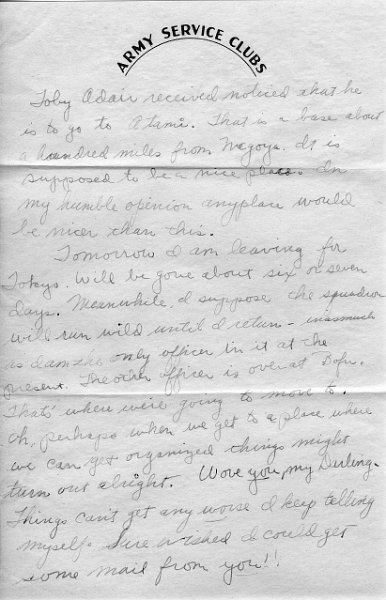 ARMY SERVICE CLUBS
Toby Adair received noticed that he
is to go to Atami. That is a base about
a hundred miles from Nagoya. It is
supposed to be a nice place. In
my humble opinion anyplace would
be nicer than this.
Tomorrow I am leaving for
Tokyo. Will be gone about six or seven
days. Meanwhile, I suppose the squadron
will run wild until I return - inasmuch
as I am the only officer in it at the
present. The other officer is over at Bofu.
That's where we're going to move to.
Oh, perhaps when we get to a place where
we can get organized things might
turn out alright. Love you, my Darling.
Things can't get any worse I keep telling
myself. Sure wished I could get
some mail from you!!